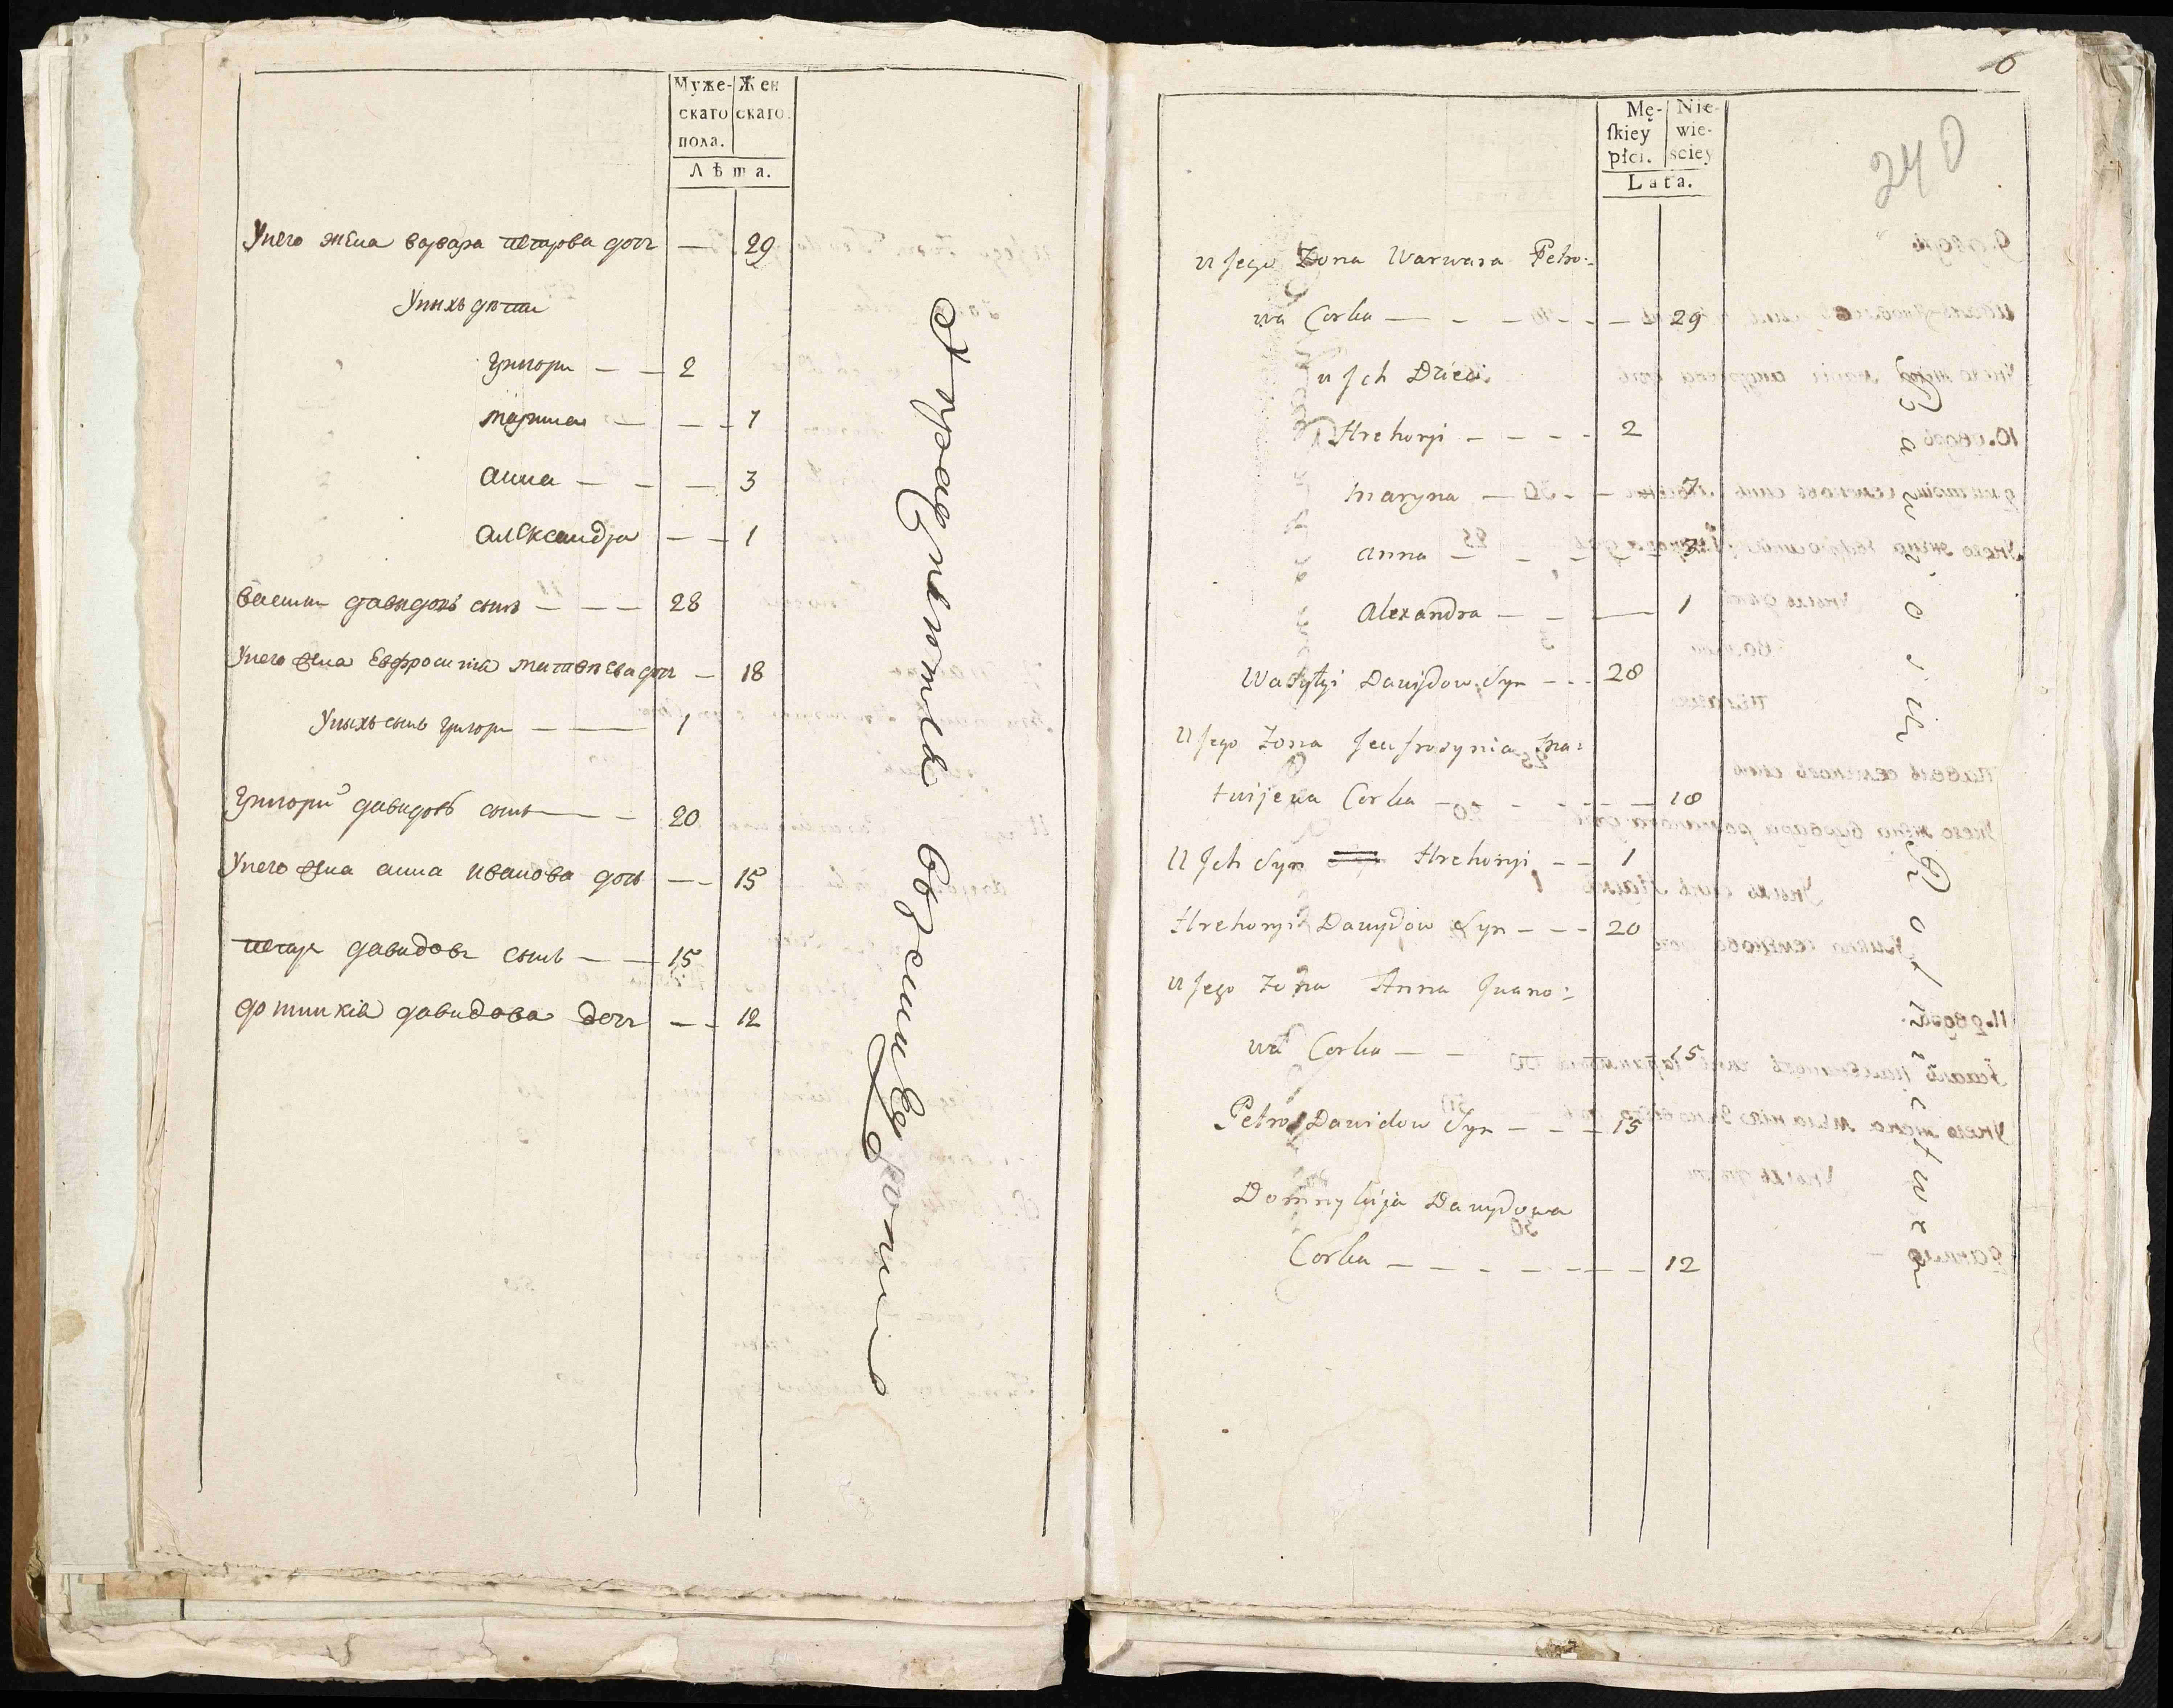 Муже-
скаго
пола.
Жен
скаго.
Лѣта.
Унего жена варвара петрова дочь — 29
Унихъ дѣти
григори — — 2
марина — — — 7
анна — — — 3
александра — — 1
василии давидовъ сынъ — — — 28
Унего жена Евфросинiя матвѣева дочь — 18
Унихъ сынъ григори — — 1
Григорий давидовъ сынъ — — 20
Унего жена анна иванова дочь — — 15
петръ давидовъ сынъ — — 15
домникiя давидова дочь — — 12
6
240
Mę-
ſkiey
płci.
Nie-
wie-
sciey
Lata.
u Jego Zona Warwara Petro-
wa Corka — — — — — 29
u Jch Dzieci
Hrehoryi — — — — 2
Maryna — — — 7
Anna — — — 3
Alexandra — — — 1
Wasylyi Dawydow Syn — — 28
u Jego Zona Jeufrosynia Ma-
twijewa Corka — — — — — 18
U Jch Syn Hrehoryi — — 1
Hrehoryi Dawydow Syn — — — 20
u Jego Zona Anna Jwano-
wa Corka — — 15
Petro Dawidow Syn — — — 15
Domnykija Dawydowa
Corka — — — — — — — 12